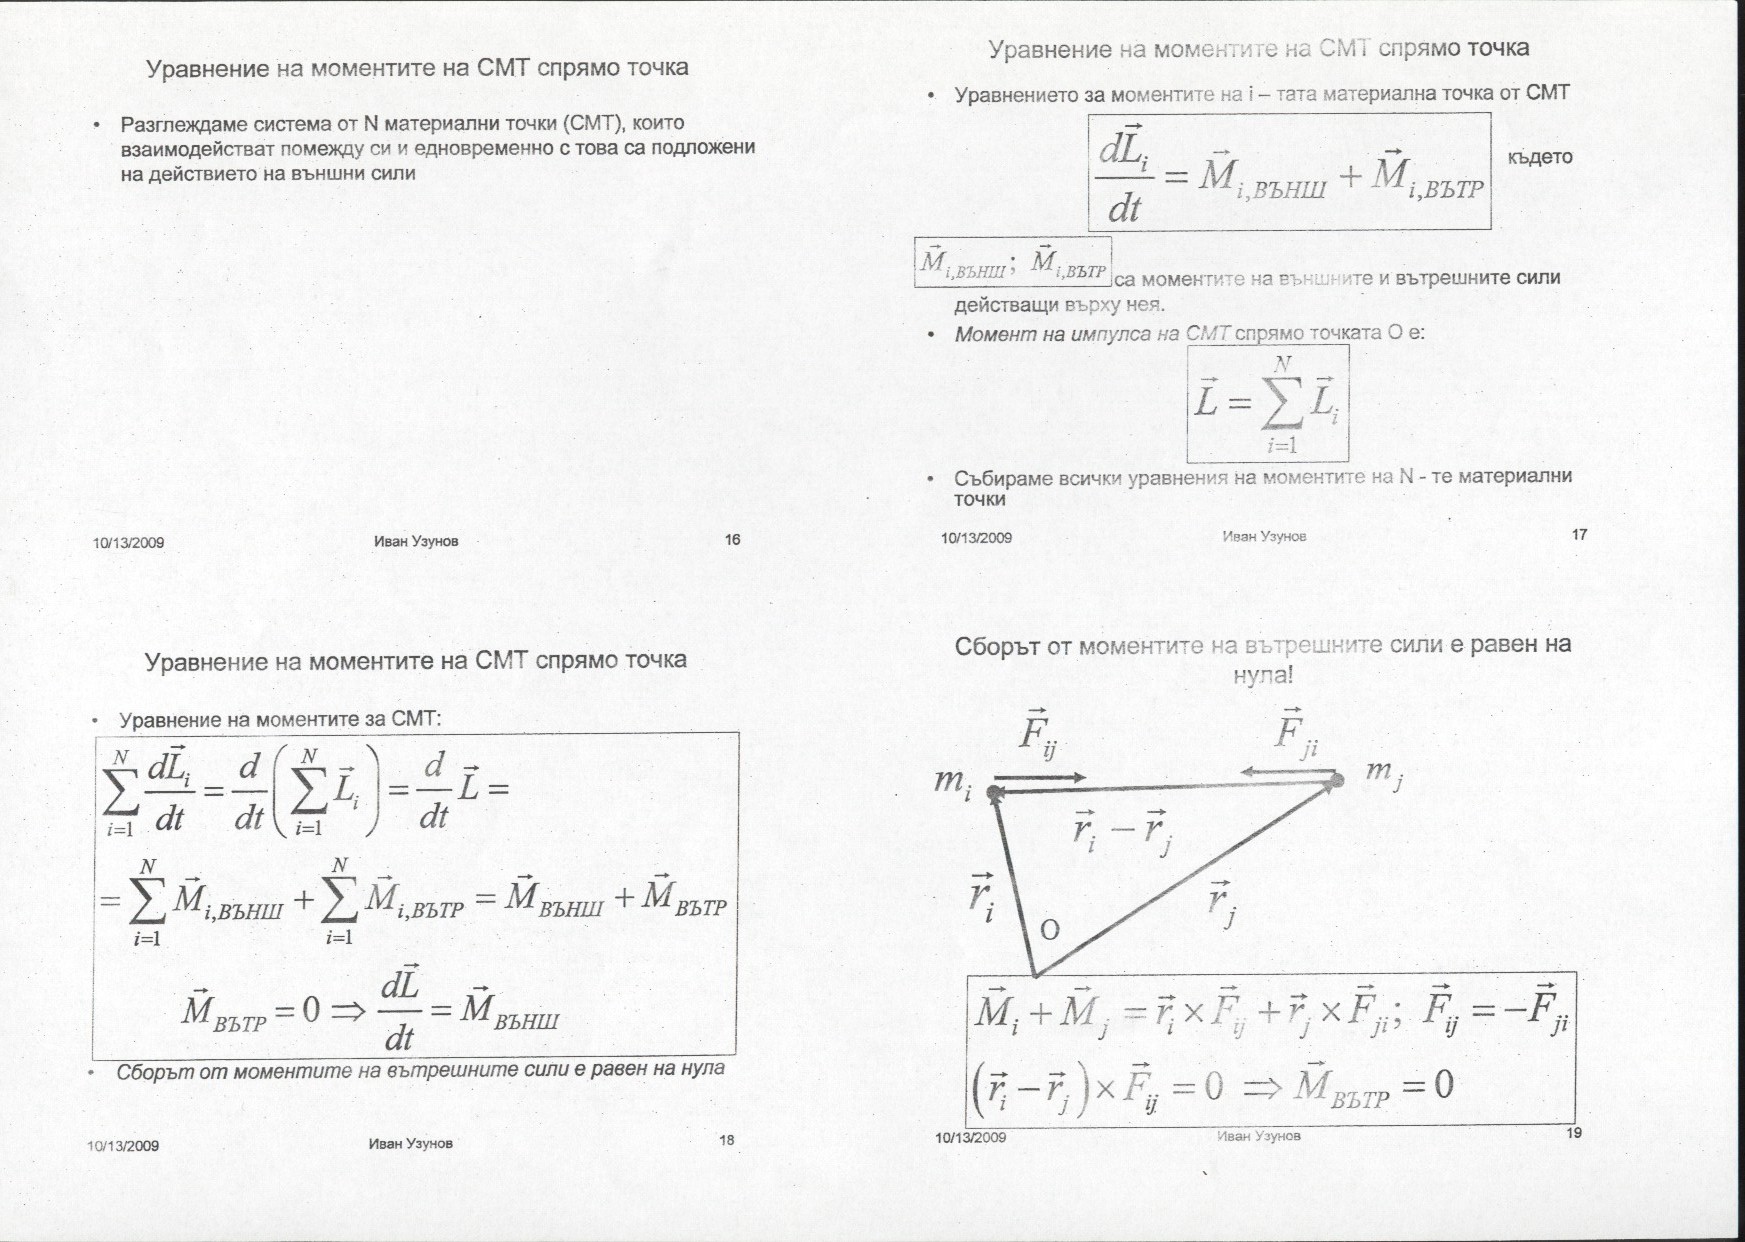 Уравнение на моментите на СМТ спрямо точка
• Разглеждаме система от N материални точки (СМТ), които
взаимодействат помежду си и едновременно с това са подложени
на действието на външни сили
10/13/2009 Иван Узунов 16
Уравнение на моментите на СМТ спрямо точка
• Уравнението за моментите на i – тата материална точка от СМТ
dL⃗_i/dt = M⃗_i,ВЪНШ + M⃗_i,ВЪТР където
M⃗_i,ВЪНШ; M⃗_i,ВЪТР са моментите на външните и вътрешните сили
действащи върху нея.
• Момент на импулса на СМТ спрямо точката О е:
L⃗ = ∑_{i=1}^{N} L⃗_i
• Събираме всички уравнения на моментите на N - те материални
точки
10/13/2009 Иван Узунов 17
Уравнение на моментите на СМТ спрямо точка
• Уравнение на моментите за СМТ:
∑_{i=1}^{N} dL⃗_i/dt = d/dt (∑_{i=1}^{N} L⃗_i) = d/dt L⃗ =
= ∑_{i=1}^{N} M⃗_i,ВЪНШ + ∑_{i=1}^{N} M⃗_i,ВЪТР = M⃗_ВЪНШ + M⃗_ВЪТР
M⃗_ВЪТР = 0 ⇒ dL⃗/dt = M⃗_ВЪНШ
• Сборът от моментите на вътрешните сили е равен на нула
10/13/2009 Иван Узунов 18
Сборът от моментите на вътрешните сили е равен на
нула!
F⃗_ij F⃗_ji
m_i m_j
r⃗_i – r⃗_j
r⃗_i r⃗_j
O
M⃗_i + M⃗_j = r⃗_i × F⃗_ij + r⃗_j × F⃗_ji; F⃗_ij = –F⃗_ji
(r⃗_i – r⃗_j) × F⃗_ij = 0 ⇒ M⃗_ВЪТР = 0
10/13/2009 Иван Узунов 19